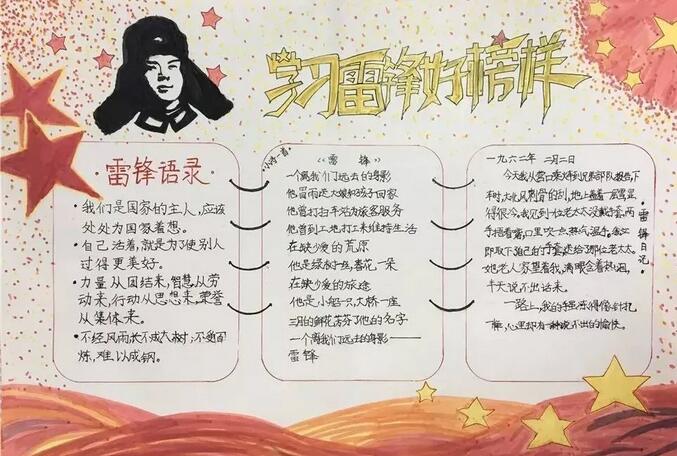 学习雷锋好榜样
雷锋语录
·我们是国家的主人,应该
处处为国家着想。
·自己活着,就是为了使别人
过得更美好。
·力量从团结来,智慧从劳
动来,行动从思想来,荣誉
从集体来。
·不经风雨,长不成大树;不受百
炼,难以成钢。
小诗一首
《雷锋》
一个离我们远去的身影
他冒雨送大娘和孩子回家
他曾打扫车站为旅客服务
他曾到工地打工来维持生活
在缺少爱的荒原
他是绿树一丝,春花一朵
在缺少爱的旅途
他是小船一只,大桥一座
三月的鲜花芬芳了他的名字
一个离我们远去的身影——
雷锋
雷锋日记
一九六二年 二月二日
今天我从营口乘火车到兄弟部队做报告,下
车时,大北风刺骨的刮,地上盖着一层雪,显
得很冷。我见到一位老太太没戴手套,两
手捂着嘴,口里吹一点热气温手。我立
即取下自己的手套,送给了那位老太太。
她老人家望着我,满眼含着热泪,
半天说不出话来。
一路上,我的手虽冻得像针扎
一样,心里却有一种说不出的愉快。